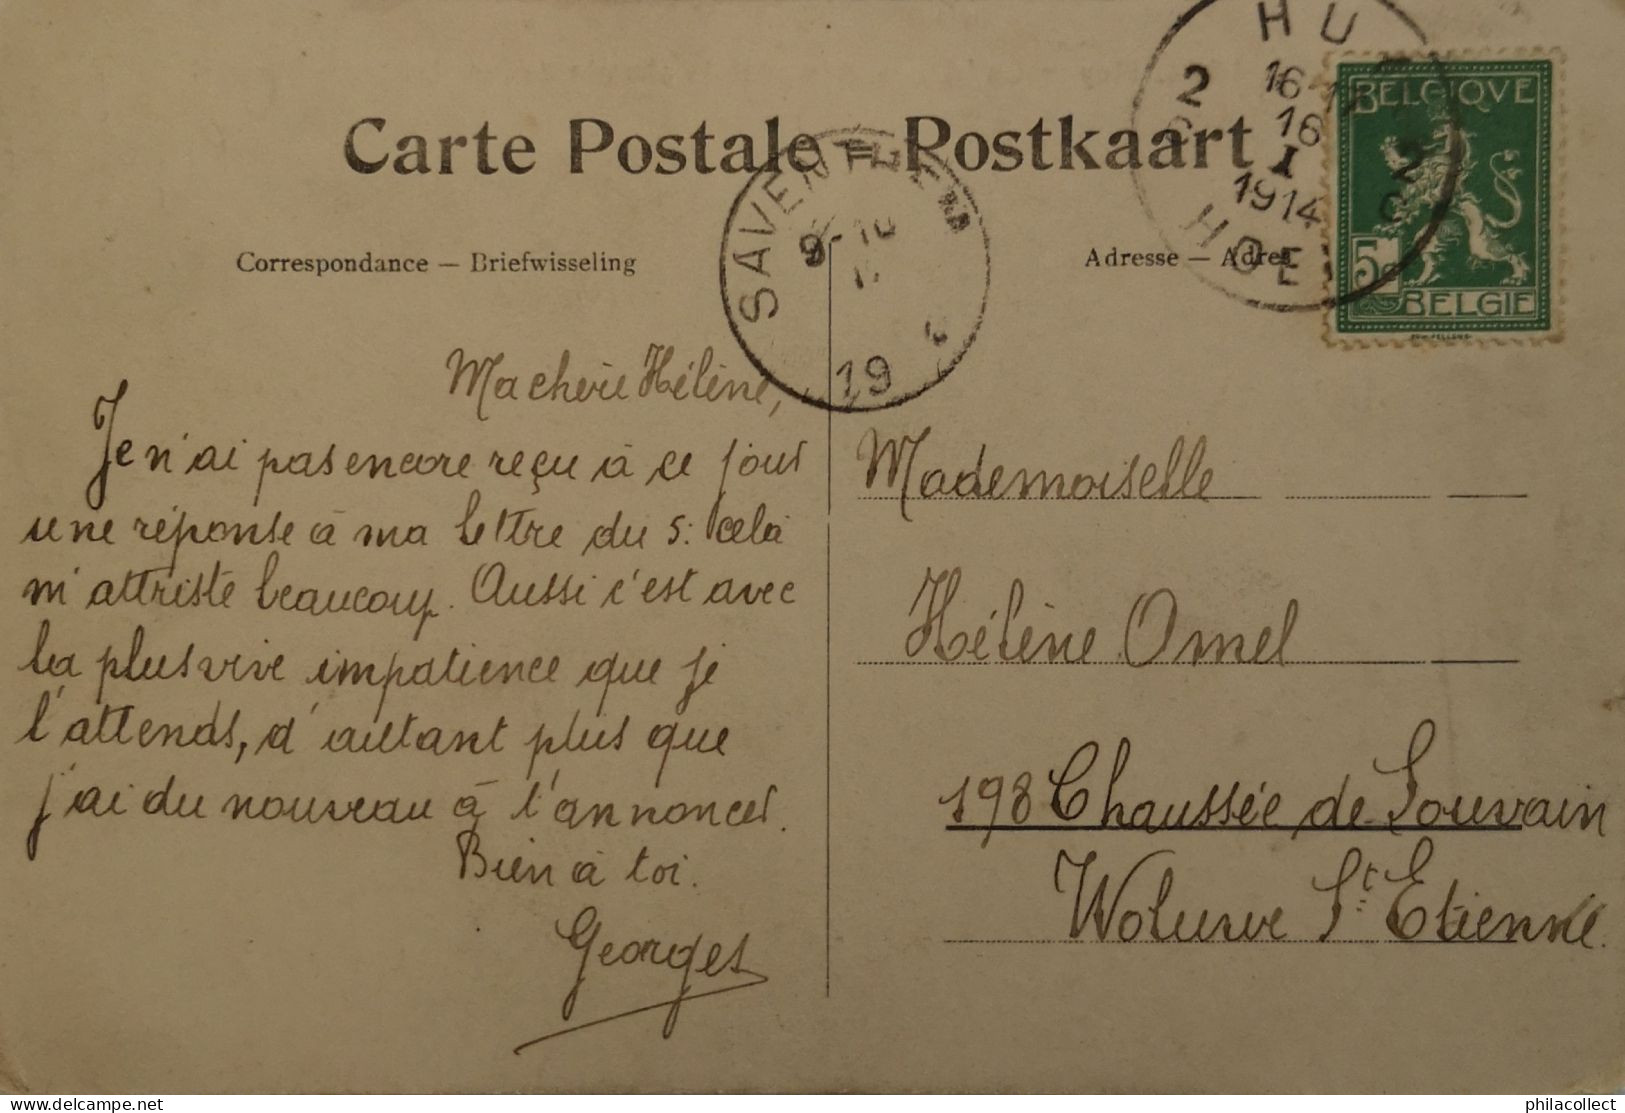 Carte Postale = Postkaart
Correspondance — Briefwisseling
Adresse — Adres
HU
2 16-17 2
16
I
1914
C C
HOEI
BELGIQVE
5c
BELGIE
SAVENTHEM
9-10
19
Ma chérie Hélène,
Je n'ai pas encore reçu à ce jour
une réponse à ma lettre du 5: cela
m'attriste beaucoup. Aussi c'est avec
la plus vive impatience que je
l'attends, d'autant plus que
j'ai du nouveau à t'annoncer.
Bien à toi.
Georges
Mademoiselle
Hélène Omel
198 Chaussée de Louvain
Woluwe St. Etienne.
philacollect